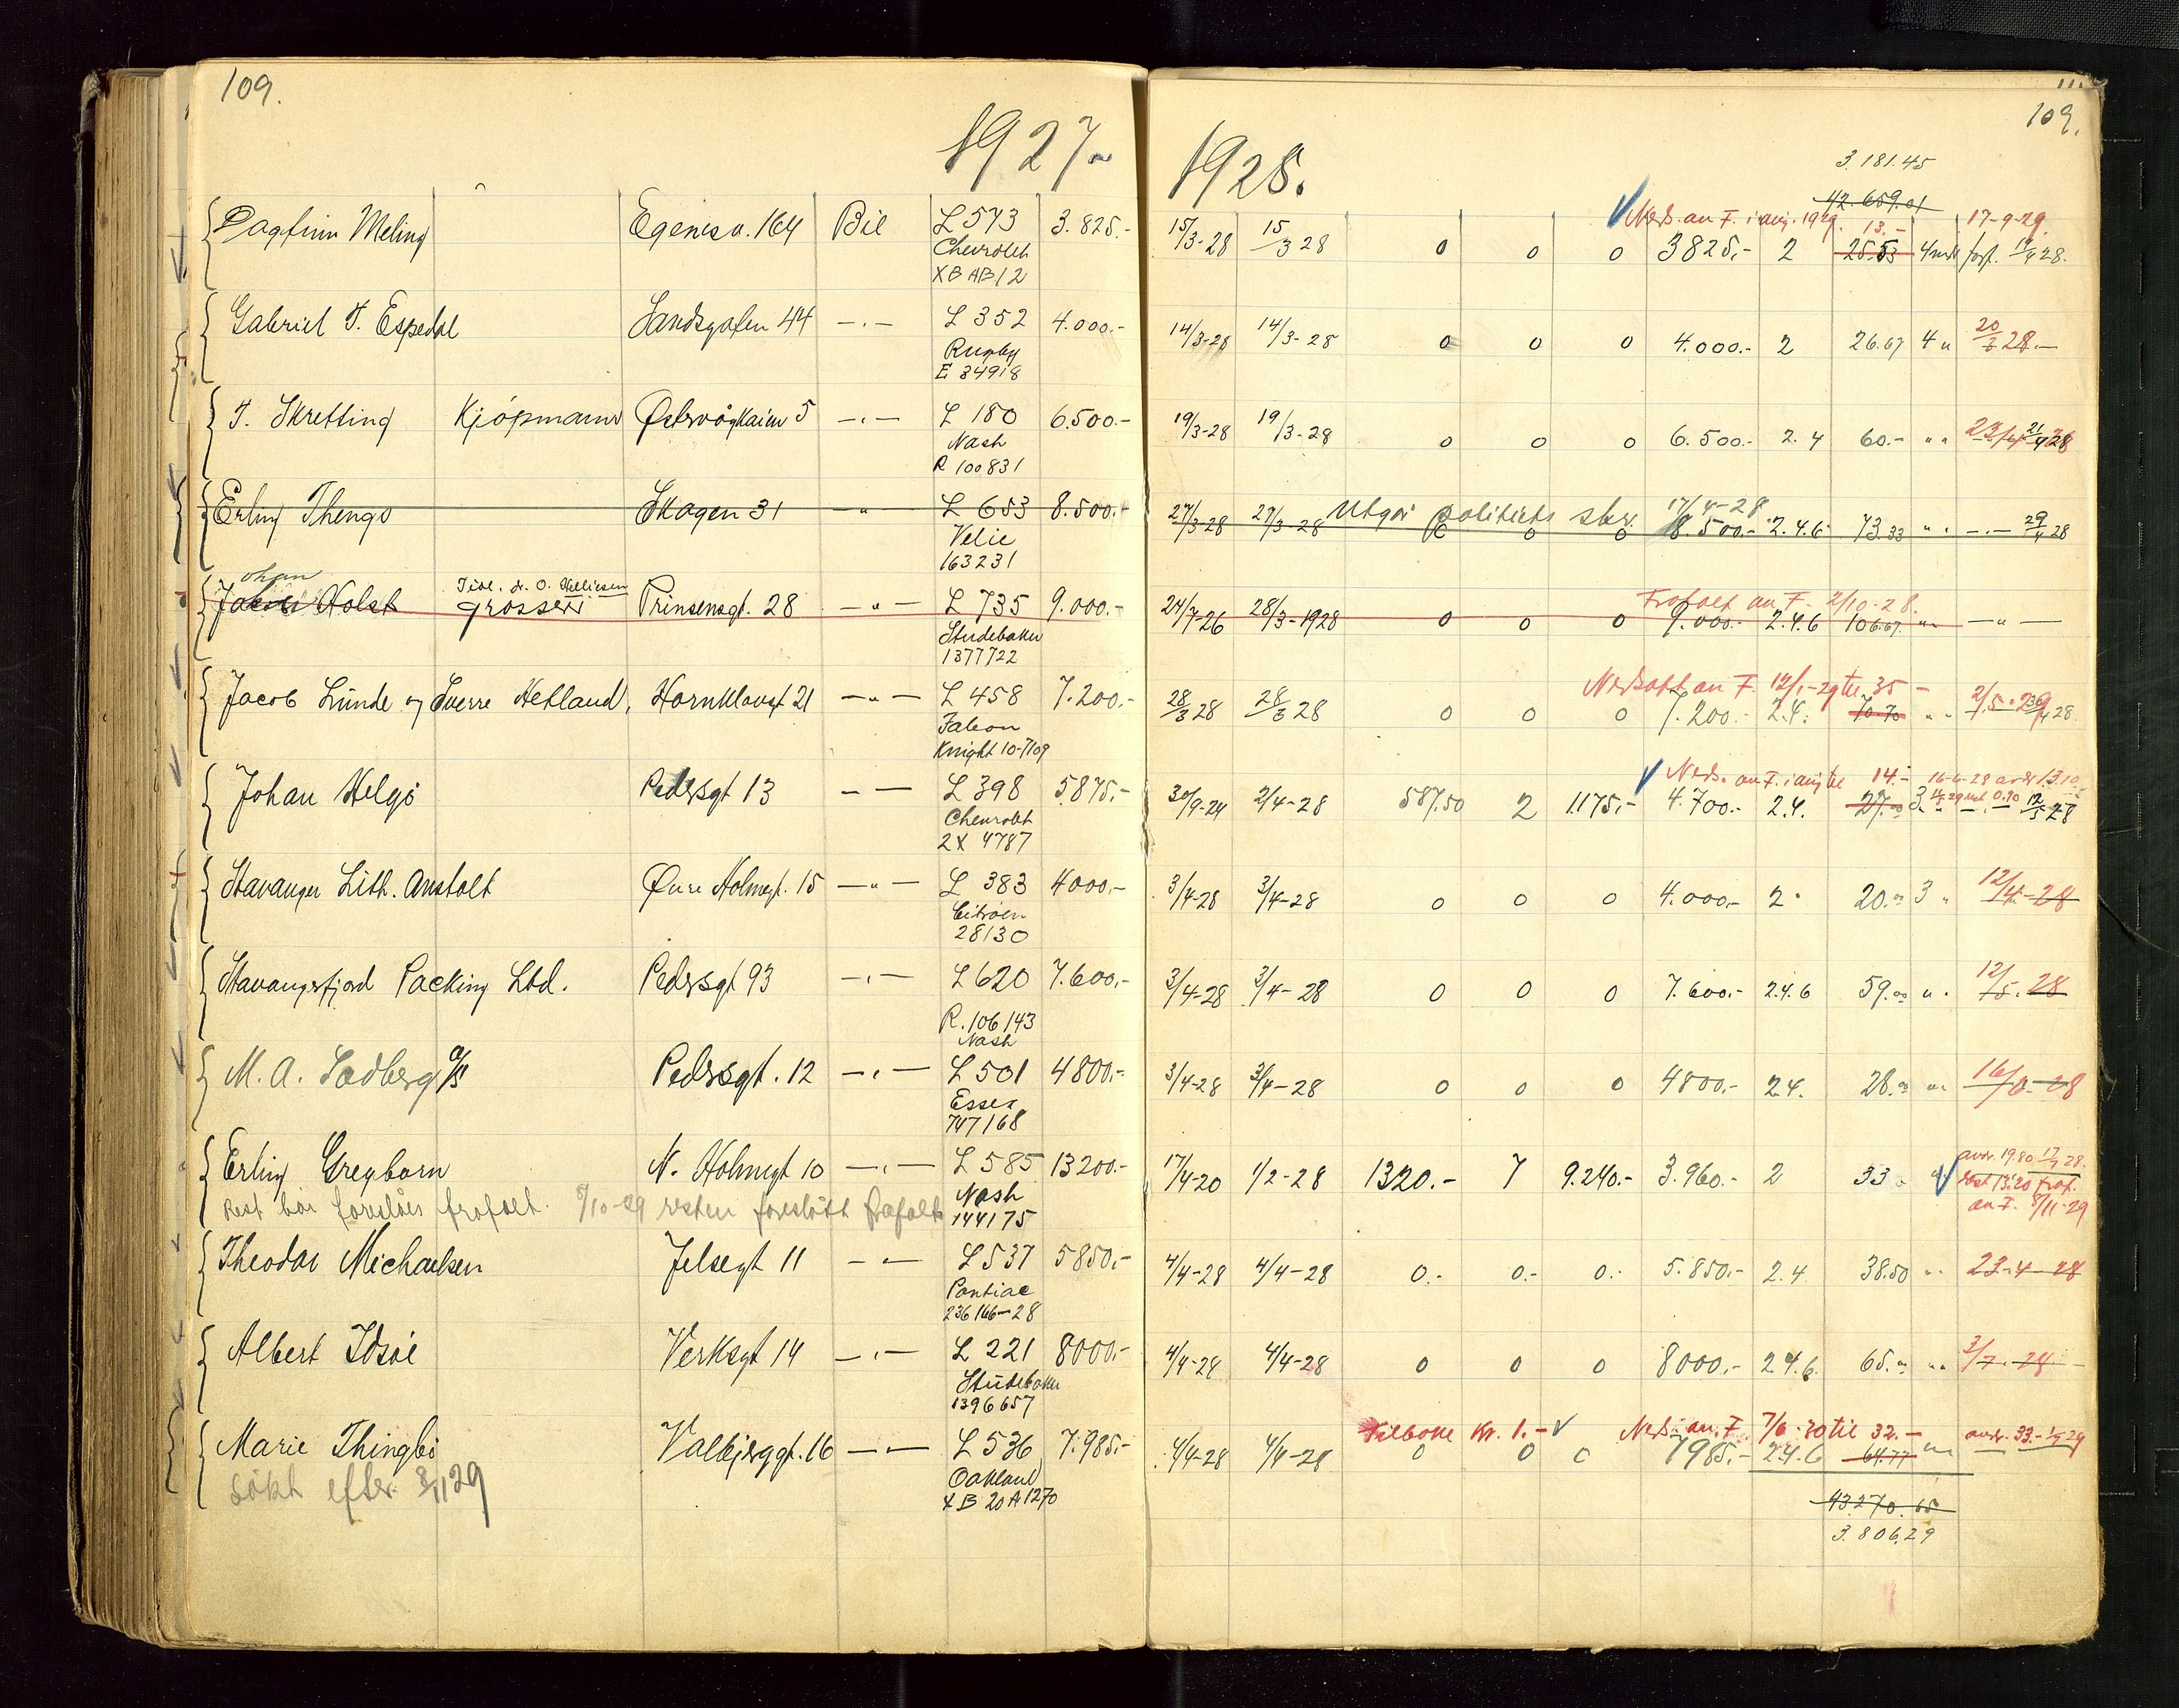 109.
1927.
Dagfinn Meling Egenesv. 164 Bil L 573 3.825.-
Chevrolet
XB AB 12
Gabriel T. Espedal Sandsgaten 44 —.— L 352 4.000.-
Rugby
E 34918
T. Skretting Kjöpmann Østervågkaien 5 —.— L 180 6.500.-
Nash
R 100831
Erling Thengs Skagen 31 —"— L 653 8.500.-
Velie
163231
Johan Holst Tidl. dr. O. Helliesen grosserer Prinsensgt. 28 —"— L 735 9.000.-
Studebaker
1377722
Jacob Lunde og Sverre Hetland, Hornklovgt 21 —"— L 458 7.200.-
Falcon
Knight 10-7109
Johan Helgö Pedersgt 13 — — L 398 5875.-
Chevrolet
2X 4787
Stavanger Lith. Anstalt Øvre Holmegt. 15 —"— L 383 4000.-
Citroen
28130
Stavangerfjord Packing Ltd. Pedersgt 93 —.— L 620 7.600.-
R. 106143
Nash
M. A. Sædberg a/s Pedersgt. 12 —.— L 501 4800.-
Essex
747168
Erling Greyborn N. Holmegt 10 —.— L 585 13200.-
Nash
Rest bør foreslåes frafalt. 9/10-29 resten foreslått frafalt 144175
Theodor Michaelsen Jelsegt 11 — — L 537 5850.-
Pontiac
236166-28
Albert Idsöe Verksgt 14 —.— L 221 8000.-
Studebaker
1396657
Marie Thingbö Valbjerggt. 16 —.— L 536 7.985.-
Oakland
søkt efter 8/1129 XB 20A1270
109.
1928.
3.181.45
42.659.01
Neds. av F. i aug. 1929. 13.- 17-9-29.
15/3-28 15/3 28 0 0 0 3825.- 2 25.53 4 mdr forf. 14/4 28.
14/3-28 14/3-28 0 0 0 4.000.- 2 26.67 4 " 20/3 28.—
19/3-28 19/3-28 0 0 0 6.500.- 2.4 60.- " " 23/4 21/4 28
Utgår politiets skr. 17/4-28
27/3-28 27/3-28 0 0 0 8.500.- 2.4.6 73.33 " " —.— 29/4 28
Frafalt av F. 2/10-28.
24/7-26 28/3-1928 0 0 0 9.000.- 2.4.6 106.67 " —"—
Nedsatt av F. 12/1-29 til 35 -
28/3 28 28/3 28 0 0 0 7.200.- 2.4. 70.70 " "
Neds. av F. i aug til 14.- 16-6-28 avdr 13.10
30/9-24 2/4-28 587.50 2 1175.- 4.700.- 2.4. 27.00 3 " 12/5 28
3/4-28 3/4-28 0 0 0 4.000.- 2 20.00 3 " 12/4-28
3/4-28 3/4-28 0 0 0 7.600.- 2.4.6 59.00 " 12/5.28
3/4-28 3/4-28 0 0 0 4800.- 2.4. 28.00 " 16/6-28
avdr. 19.80 17/7 28.
17/4-20 1/2-28 1320.- 7 9.240.- 3.960.- 2 33 " rest 13.20 fraf.
av F. 8/11-29
4/4-28 4/4-28 0.- 0.- 0.- 5.850.- 2.4 38.50 " 23-4-28
4/4-28 4/4-28 0 0 0 8000.- 2.4.6. 65.00 " " 3/7.-28.
Tilbake Kr. 1.- Neds. av F. 7/6-29 til 32.- avdr. 33.-
4/4-28 4/4-28 0 0 0 7985.- 2.4.6 64.77 "
43.270.65
3.806,29